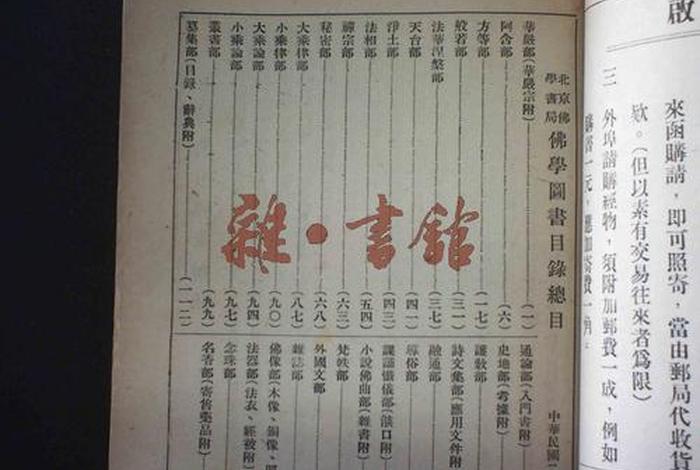 啟
來函購請，即可照寄，當由郵局代收貨
欵。（但以素有交易往來者爲限）
三　外埠請購經物，須附加郵費一成，例如
購書一元，應加寄費一角。
北京佛學書局 佛學圖書目錄總目 中華民國二
華嚴部（華嚴宗附）（一）
阿含部（六）
方等部（一七）
般若部（三一）
法華涅槃部（三七）
天台部（四一）
淨土部（四三）
法相部（五四）
禪宗部（六三）
秘密部（六八）
大乘律部（八七）
小乘律部（九〇）
大乘論部（九四）
小乘論部（九七）
叢書部（九九）
纂集部（目錄、辭典附）（一一二）
通論部（入門書附）
史地部（考據附）
護教部
詩文集部（應用文件附
融通部
導俗部
課誦懺儀部（燄口附）
小說佛曲部（雜書附）
梵帙部
外國文部
雜誌部
佛像部（木像、銅像、
法器部（法衣、經被附）
念珠部
名香部（寄售藥品附）
雜·書館